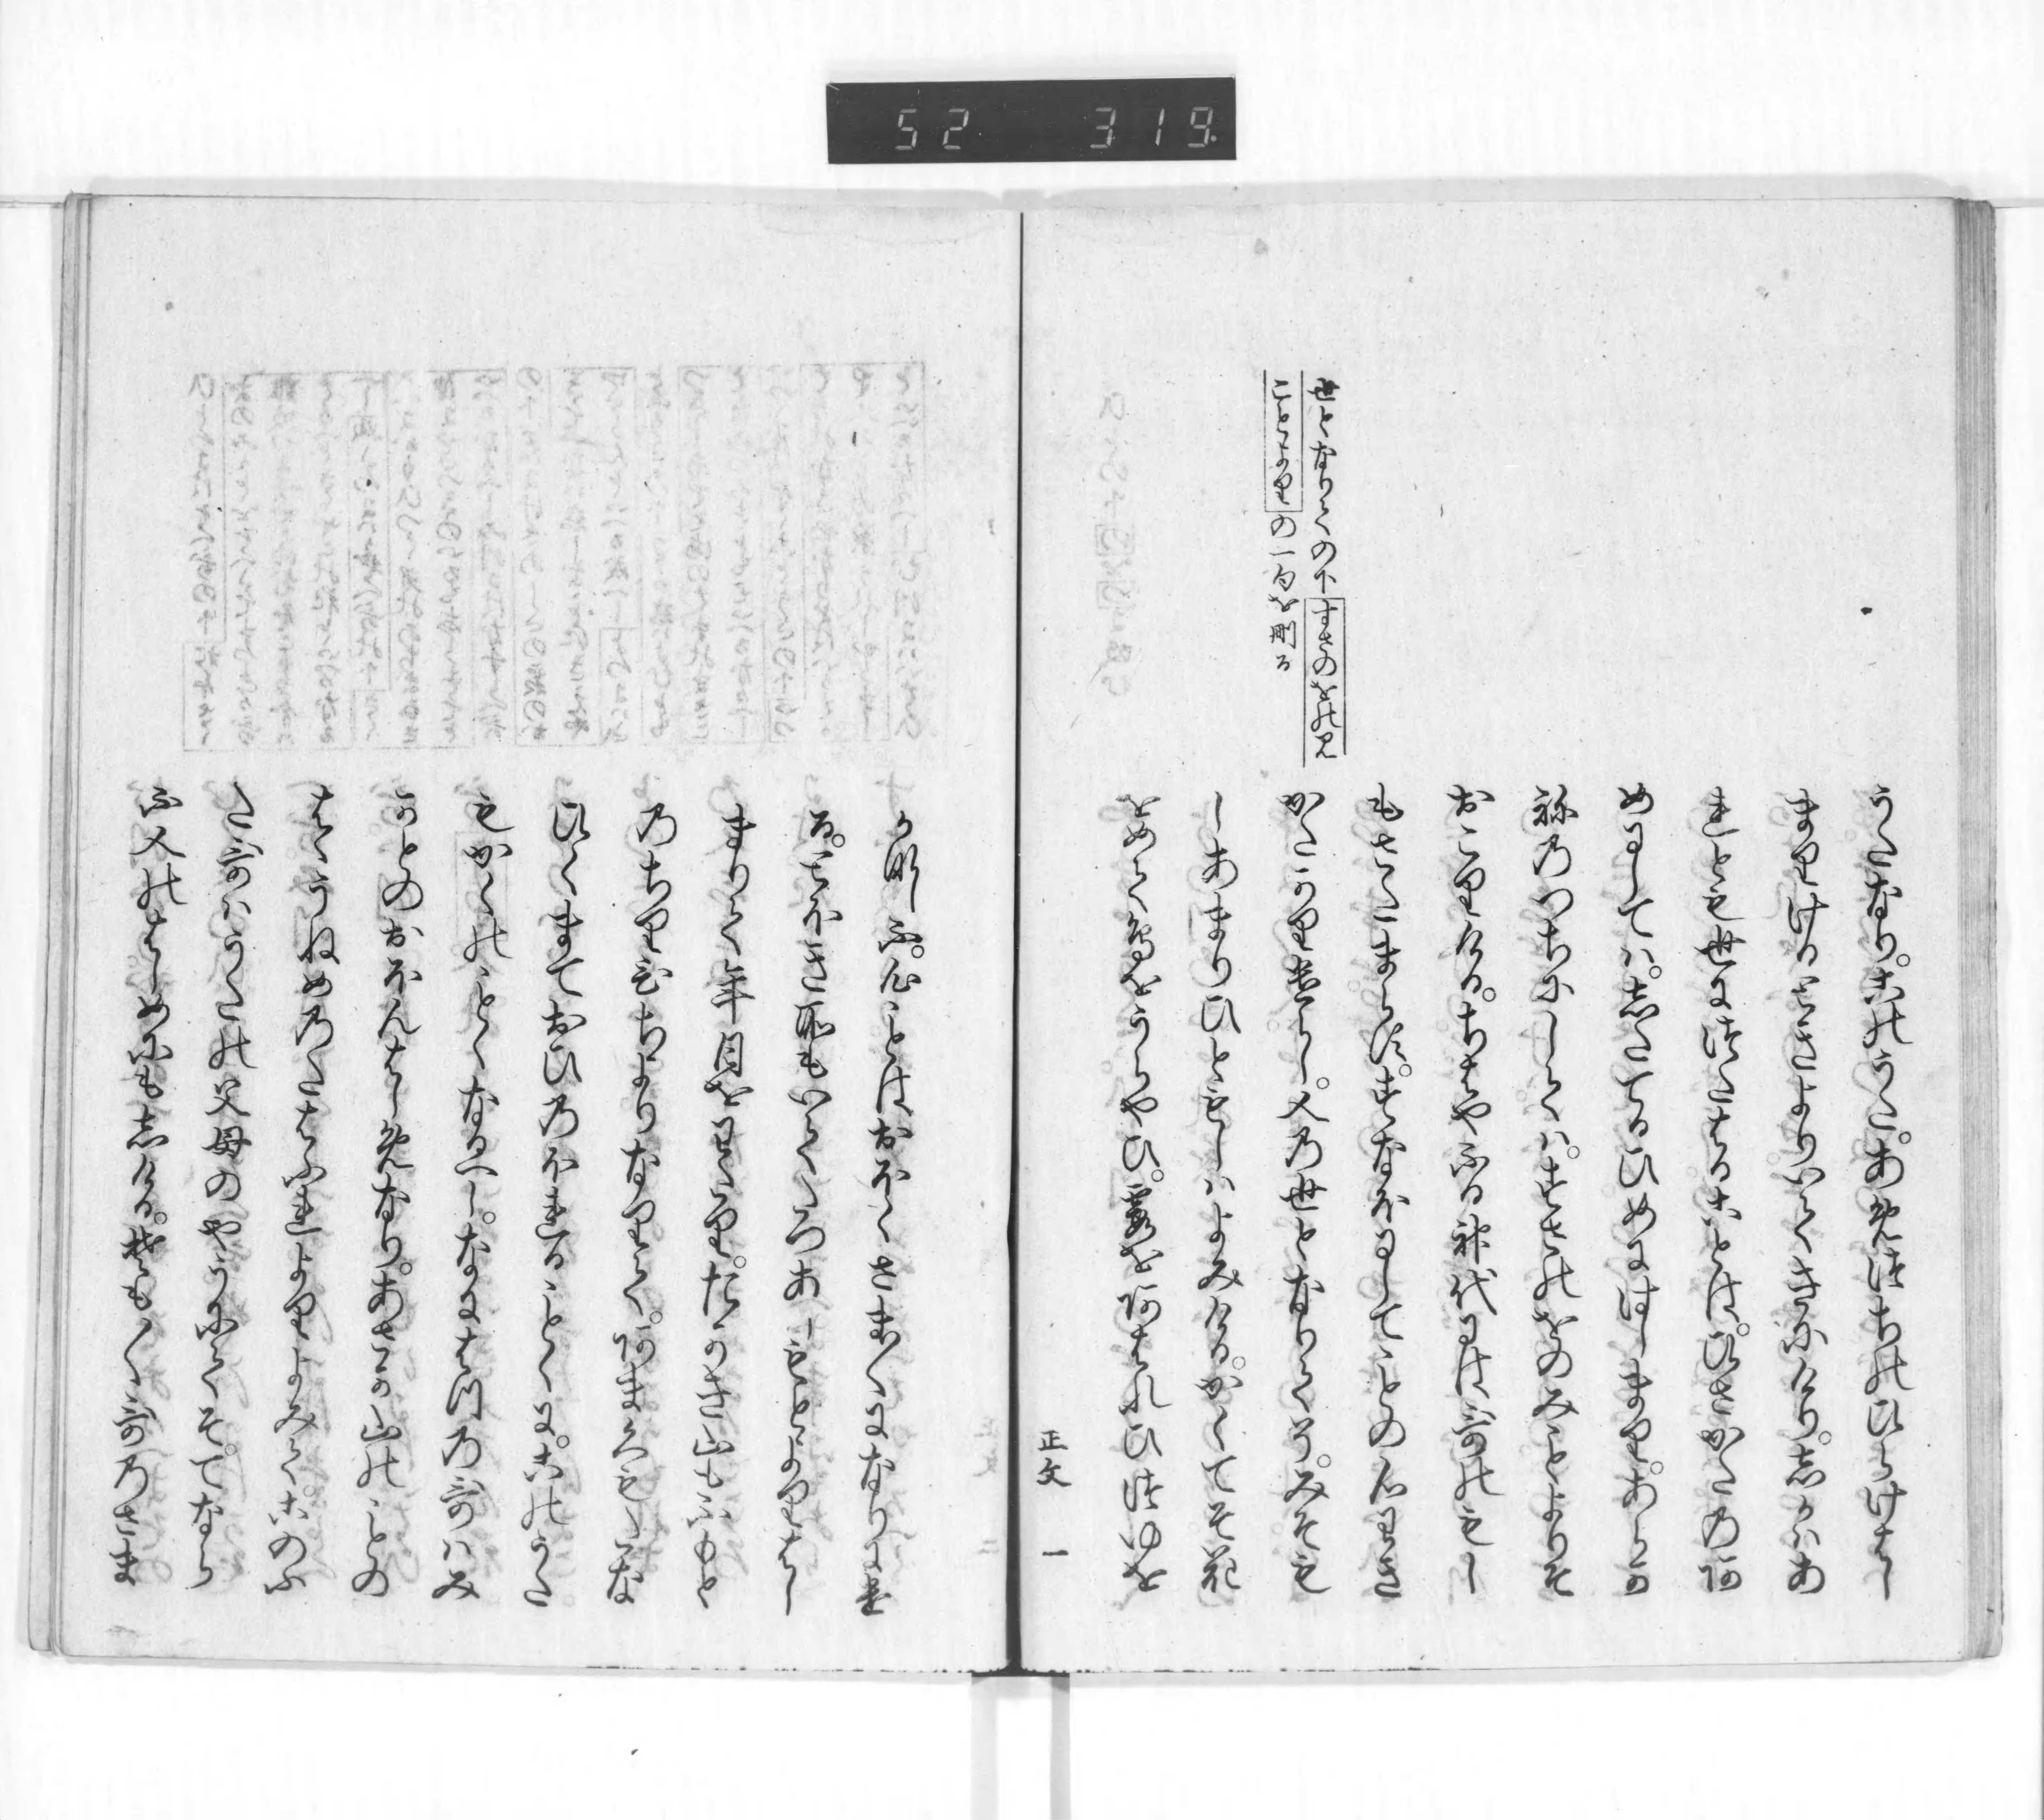 うたなり。このうた。あめつちのひらけはし
まりけるときよりいてきにけり。しかはあ
れとも世につたはることは。ひさかたのあ
めにしては。したてるひめにはしまり。あらか
ねのつちにしては。すさのをのみことよりそ
おこりける。ちはやふる神代には哥のもし
もさたまらす。すなほにしてことの心わき
世となりての下すさのをのみ
ことよりの一句を削る
かたかりけらし。人の世となりてそ。みそも
しあまりひともしはよみける。かくてそ花
をめて鳥をうらやひ。霞をあはれひつゆを
正文 一
かなしふ。心ことはおほくさま〱になりにけ
る。とほき所もいてたつあしもとよりはし
まりて年月をわたり。たかき山もふもと
のちりひちよりなりて。あまくもたな
ひくまておひのほれることくに。このうた
もかくのことくなるへし。なにはつの哥はみ
かとのおほんはしめなり。あさか山のことの
はゝうねめのたはふれよりよみて。このふ
た哥はうたの父母のやうにてそ。てなら
ふ人のはしめにもしける。そも〱哥のさま